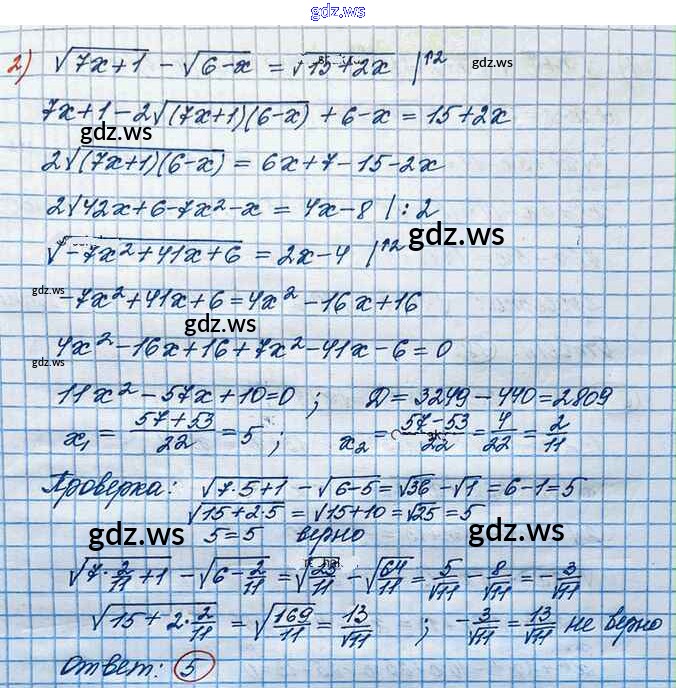 gdz.ws
2) √(7x+1) - √(6-x) = √(15+2x) |↑2
gdz.ws
7x+1-2√((7x+1)(6-x)) + 6-x = 15+2x
gdz.ws
2√((7x+1)(6-x)) = 6x+7-15-2x
gdz.ws
2√(42x+6-7x²-x) = 4x-8 | :2
gdz.ws
√(-7x²+41x+6) = 2x-4 |↑2
gdz.ws
-7x²+41x+6=4x²-16x+16
gdz.ws
4x²-16x+16+7x²-41x-6=0
gdz.ws
11x²-57x+10=0 ; D=3249-440=2809
x₁ = (57+53)/22 = 5 ; x₂ = (57-53)/22 = 4/22 = 2/11
Проверка: √(7·5+1) - √(6-5) = √36 - √1 = 6-1=5
√(15+2·5) = √(15+10) = √25 = 5
gdz.ws gdz.ws
5=5 верно
√(7·2/11+1) - √(6-2/11) = √(25/11) - √(64/11) = 5/√11 - 8/√11 = -3/√11
√(15+2·2/11) = √(169/11) = 13/√11 ; -3/√11 = 13/√11 не верно
Ответ: 5
gdz.ws